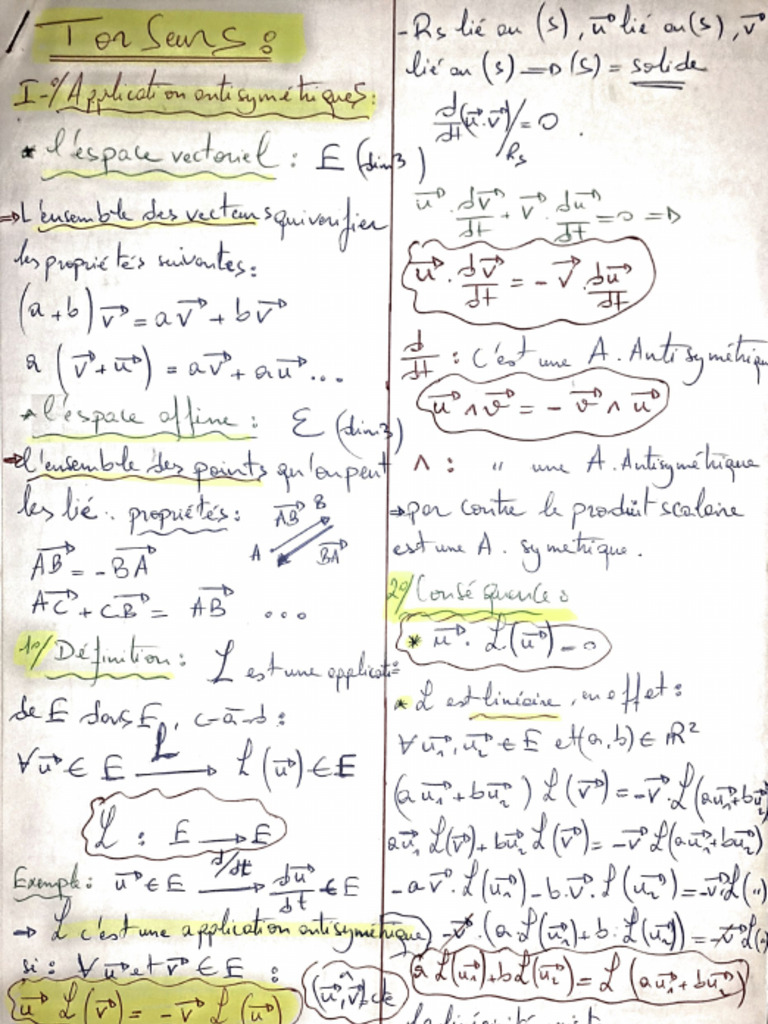 Torseurs :
I-°/ Application antisymétriques :
* l'espace vectoriel : E (dim 3)
⇒ L'ensemble des vecteurs qui vérifier
les propriétés suivantes :
(a + b) v⃗ = a v⃗ + b v⃗
a (v⃗ + u⃗) = a v⃗ + a u⃗ ...
* l'espace affine : ℰ (dim 3)
→ l'ensemble des points qu'on peut
les lié . propriétés :
AB⃗ B
A BA⃗
AB⃗ = - BA⃗
AC⃗ + CB⃗ = AB⃗ ...
1°/ Définition : ℒ est une applicati°
de E dans E, c-à-d :
∀ u⃗ ∈ E —ℒ→ ℒ(u⃗) ∈ E
ℒ : E → E
Exemple : u⃗ ∈ E —d/dt→ du⃗/dt ∈ E
→ ℒ c'est une application antisymétrique
si : ∀ u⃗ et v⃗ ∈ E :
u⃗ ℒ(v⃗) = - v⃗ ℒ(u⃗)
- Rs lié au (s), u⃗ lié au (s), v⃗
lié au (s) ⇒ (s) = solide
d/dt (u⃗ . v⃗) /Rs = 0 .
u⃗ . dv⃗/dt + v⃗ . du⃗/dt = 0 ⇒
u⃗ . dv⃗/dt = - v⃗ . du⃗/dt
d/dt : c'est une A. Antisymétriqu
u⃗ ∧ v⃗ = - v⃗ ∧ u⃗
∧ : " une A. Antisymétrique
→ par contre le produit scalaire
est une A. symetrique.
2°/ Conséquence :
* u⃗ . ℒ(u⃗) = 0
* ℒ est linéaire, en effet :
∀ u₁⃗, u₂⃗ ∈ E et (a, b) ∈ ℝ²
(a u₁⃗ + b u₂⃗) ℒ(v⃗) = - v⃗ . ℒ(a u₁⃗ + b u₂⃗
a u₁⃗ ℒ(v⃗) + b u₂⃗ ℒ(v⃗) = - v⃗ ℒ(a u₁⃗ + b u₂⃗)
- a v⃗ . ℒ(u₁⃗) - b . v⃗ . ℒ(u₂⃗) = - v⃗ . ℒ(")
- v⃗ . (a . ℒ(u₁⃗) + b . ℒ(u₂⃗)) = - v⃗ ℒ(
a ℒ(u₁⃗) + b ℒ(u₂⃗) = ℒ(a u₁⃗ + b u₂⃗)